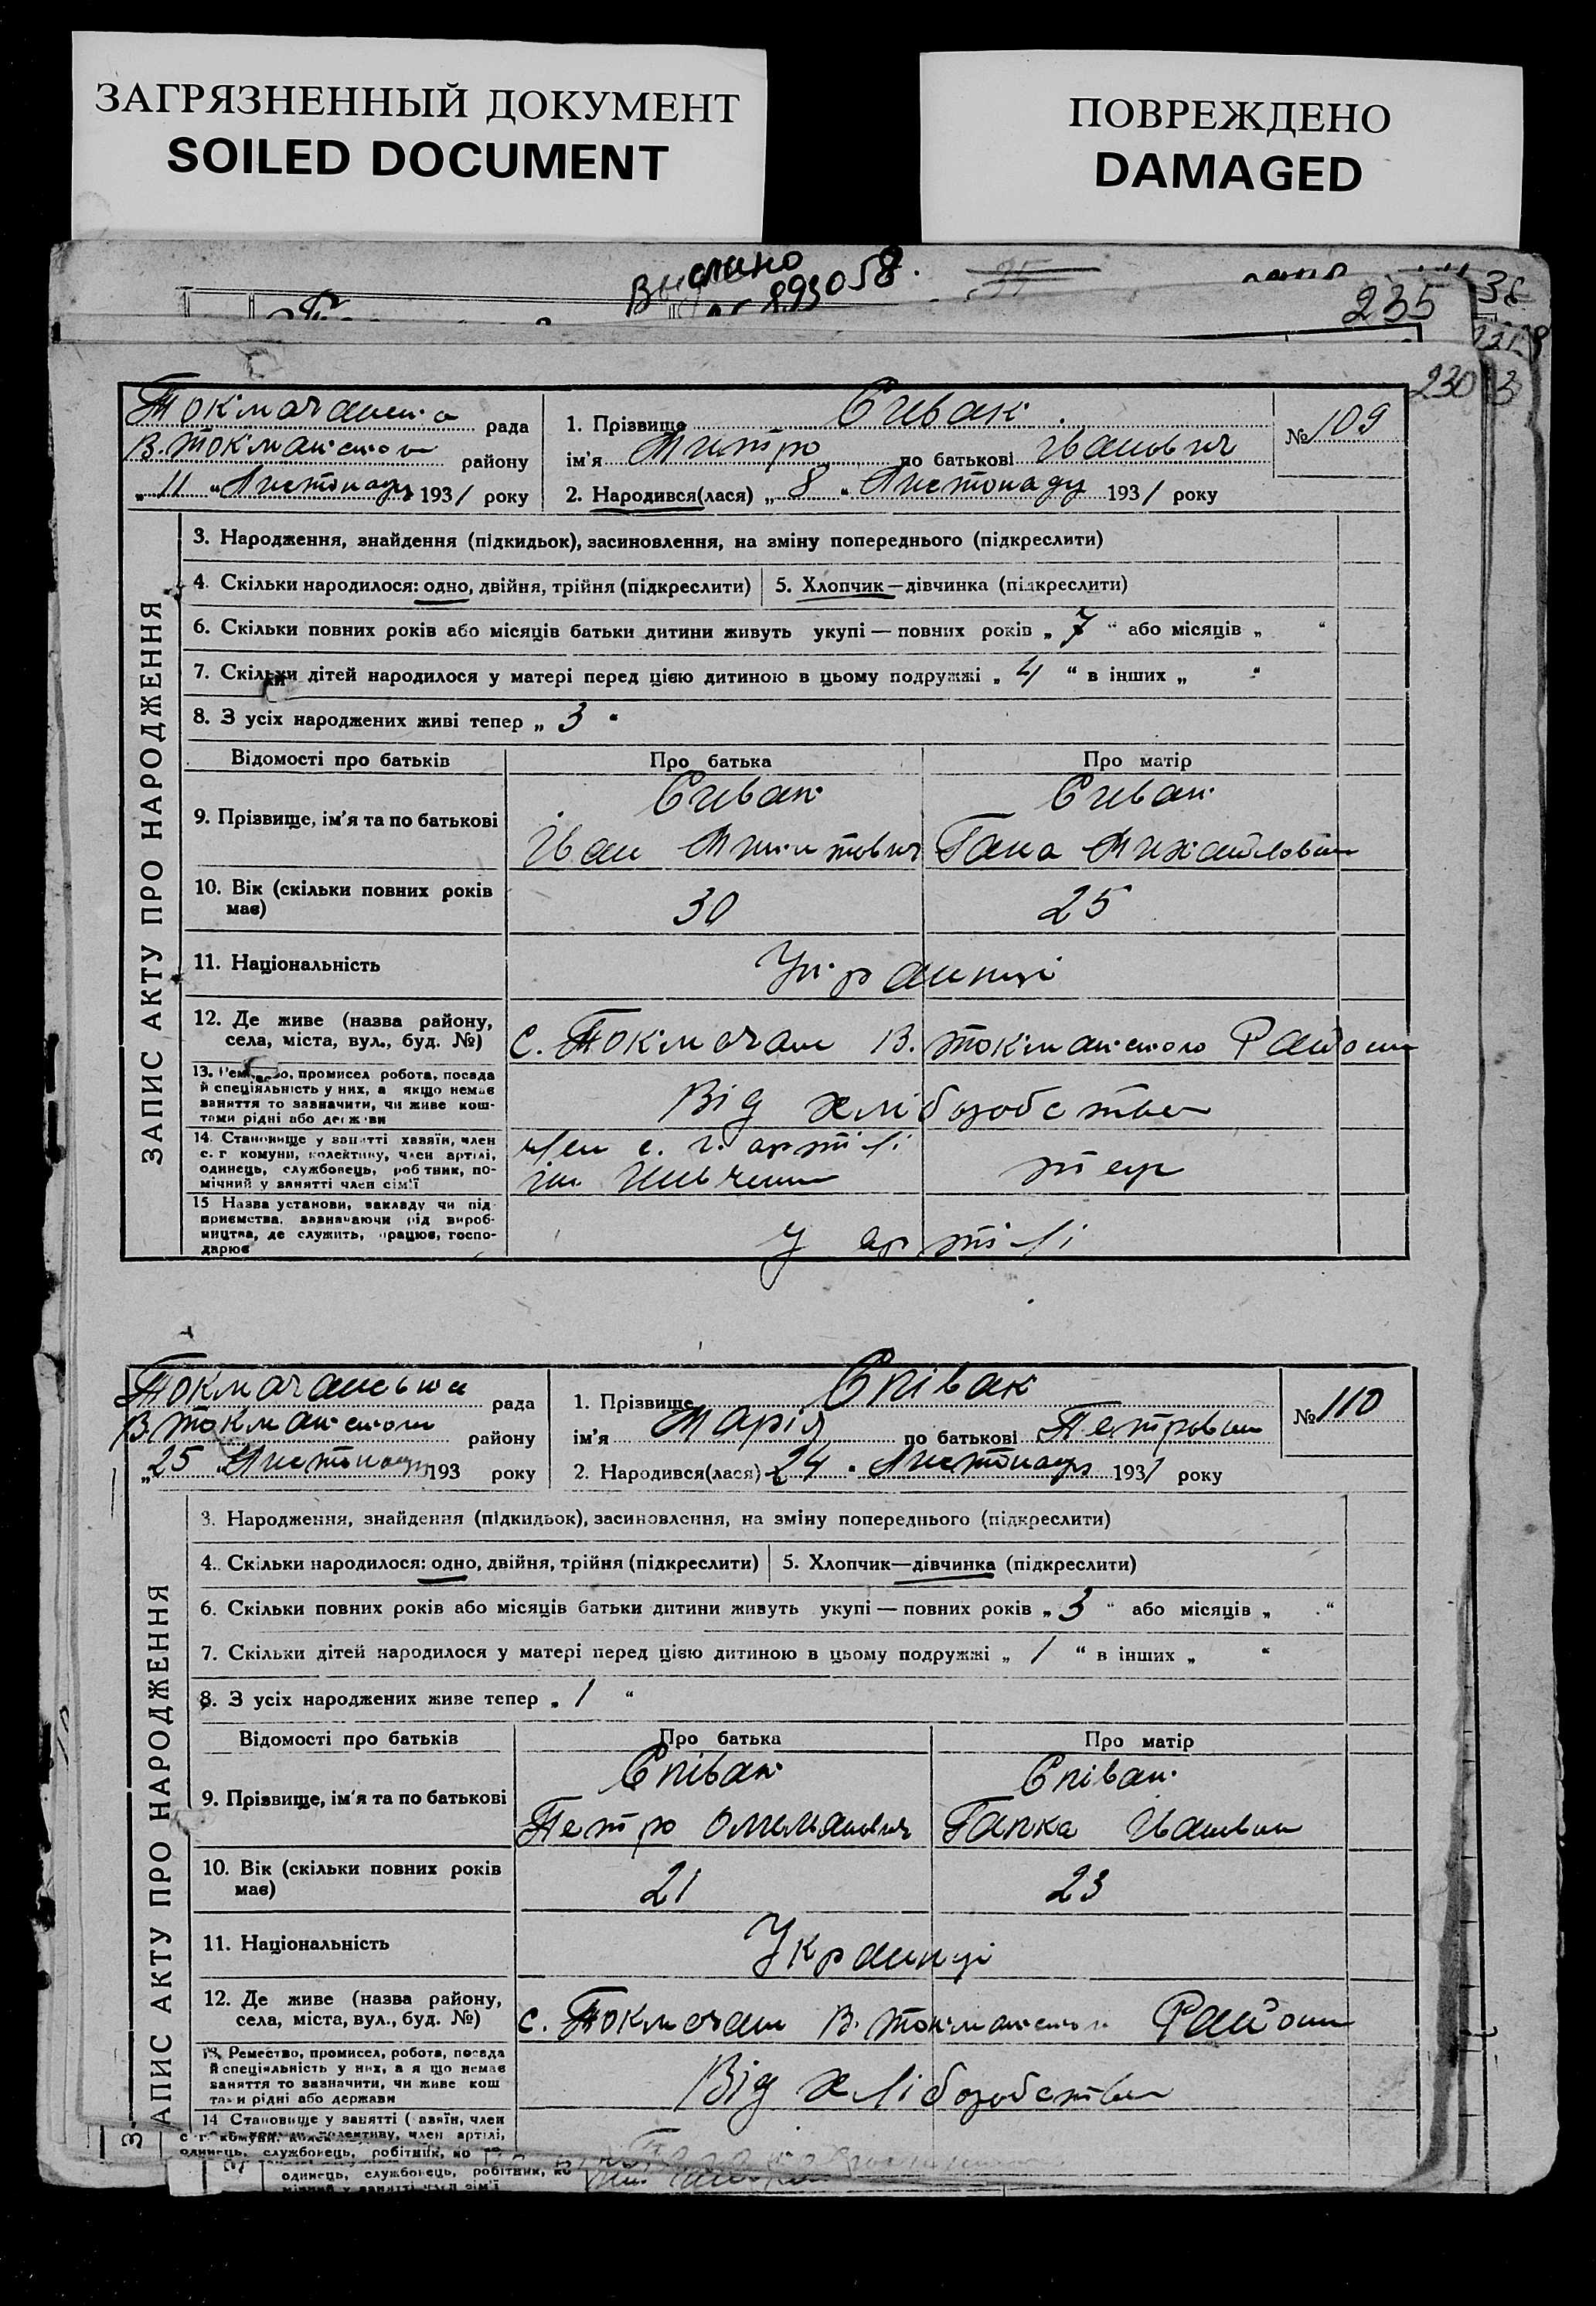 ЗАГРЯЗНЕННЫЙ ДОКУМЕНТ
SOILED DOCUMENT
ПОВРЕЖДЕНО
DAMAGED
Вислано
893058.
35
235
38
230
3
рада
В. Токмакського району
"11" Листопаду 1931 року
1. Прізвище Співак
ім'я Митро по батькові Іванович
2. Народився(лася) "8" Листопаду 1931 року
№ 109
ЗАПИС АКТУ ПРО НАРОДЖЕННЯ
3. Народження, знайдення (підкидьок), засиновлення, на зміну попереднього (підкреслити)
4. Скільки народилося: одно, двійня, трійня (підкреслити) 5. Хлопчик—дівчинка (підкреслити)
6. Скільки повних років або місяців батьки дитини живуть укупі — повних років „ 7 “ або місяців „ “
7. Скільки дітей народилося у матері перед цією дитиною в цьому подружжі „ 4 “ в інших „ “
8. З усіх народжених живі тепер „ 3 “
Відомості про батьків Про батька Про матір
9. Прізвище, ім'я та по батькові
Співак Співак
Іван Гана Михайловна
10. Вік (скільки повних років має) 30 25
11. Національність Українці
12. Де живе (назва району, села, міста, вул., буд. №)
с. Токмачан В. Токмакського Району
13. Ремество, промисел робота, посада
й спеціяльність у них, а якщо немає
заняття то зазначити, чи живе кош-
тами рідні або держави
Від хліборобства
14. Становище у занятті хазяїн, член
с. г комуни, колективу, член артілі,
одинець, службовець, робтник, по-
мічний у занятті член сім'ї
член с. г. артілі
ім Шевченка
теж
15 Назва установи, закладу чи під-
приємства, зазначаючи рід вироб-
ництва, де служить, працює, госпо-
дарює
У артілі
рада
В. Токмакського району
"25" Листопаду 193 року
1. Прізвище Співак
ім'я Марія по батькові Петровна
2. Народився(лася) "24" Листопаду 1931 року
№ 110
ЗАПИС АКТУ ПРО НАРОДЖЕННЯ
3. Народження, знайдення (підкидьок), засиновлення, на зміну попереднього (підкреслити)
4. Скільки народилося: одно, двійня, трійня (підкреслити) 5. Хлопчик—дівчинка (підкреслити)
6. Скільки повних років або місяців батьки дитини живуть укупі — повних років „ 3 “ або місяців „ “
7. Скільки дітей народилося у матері перед цією дитиною в цьому подружжі „ 1 “ в інших „ “
8. З усіх народжених живе тепер „ 1 “
Відомості про батьків Про батька Про матір
9. Прізвище, ім'я та по батькові
Співак Співак
Петро Омельянович Гапка Івановна
10. Вік (скільки повних років має) 21 23
11. Національність Українці
12. Де живе (назва району, села, міста, вул., буд. №)
с. Токмачан В. Токмакського Району
13. Ремество, промисел, робота, посада
й спеціяльність у них, а я що немає
заняття то зазначити, чи живе кош
тами рідні або держави
Від хліборобства
14 Становище у занятті (хазяїн, член
с г комуни, колективу, член артілі,
одинець, службовець, робітник, по
одинець, службовець, робітник, по
мічний у занятті член сім'ї